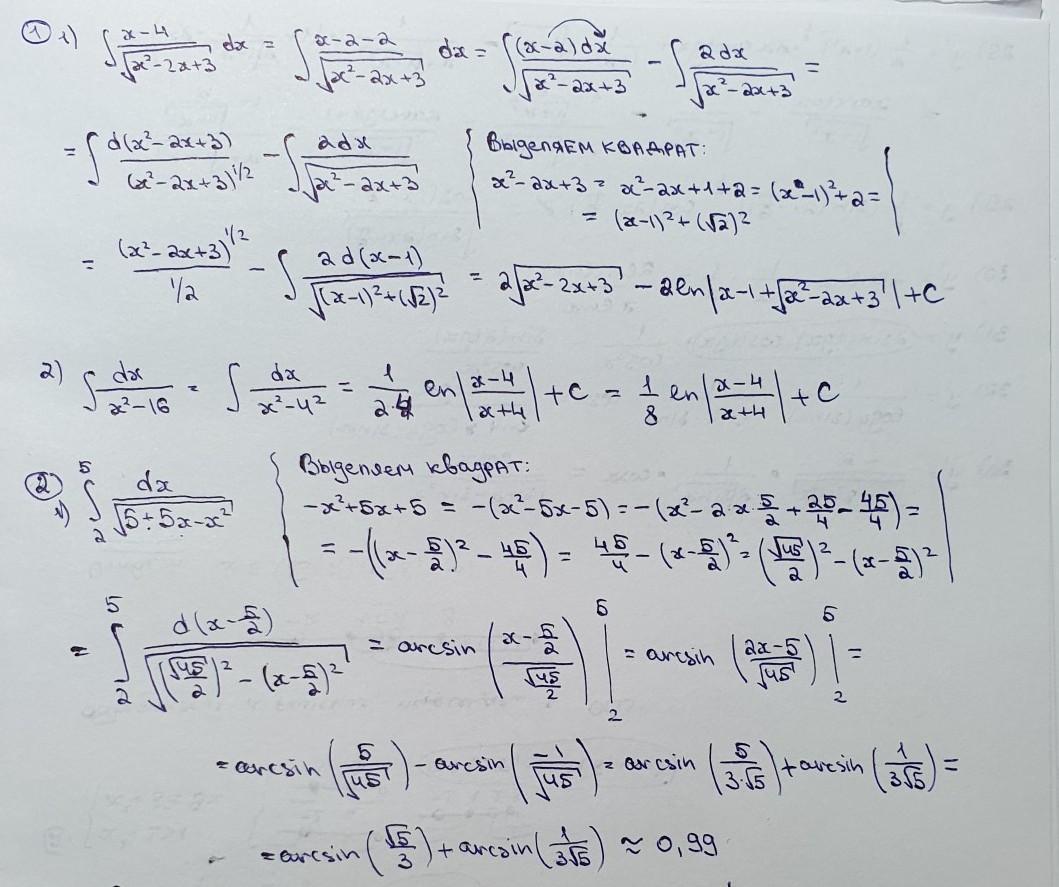 ① 1) ∫ (x-4)/√(x²-2x+3) dx = ∫ (x-2-2)/√(x²-2x+3) dx = ∫ (x-2)dx/√(x²-2x+3) - ∫ 2dx/√(x²-2x+3) =
= ∫ d(x²-2x+3)/(x²-2x+3)^(1/2) - ∫ 2dx/√(x²-2x+3)
Выделяем квадрат:
x²-2x+3 = x²-2x+1+2 = (x-1)²+2 =
= (x-1)²+(√2)²
= (x²-2x+3)^(1/2)/(1/2) - ∫ 2d(x-1)/√((x-1)²+(√2)²) = 2√(x²-2x+3) - 2ln|x-1+√(x²-2x+3)|+C
2) ∫ dx/(x²-16) = ∫ dx/(x²-4²) = 1/(2·4) ln|(x-4)/(x+4)|+C = 1/8 ln|(x-4)/(x+4)|+C
② 1) ∫₂⁵ dx/√(5+5x-x²)
Выделяем квадрат:
-x²+5x+5 = -(x²-5x-5) = -(x²-2·x·5/2+25/4-45/4) =
= -((x-5/2)²-45/4) = 45/4-(x-5/2)² = (√45/2)²-(x-5/2)²
= ∫₂⁵ d(x-5/2)/√((√45/2)²-(x-5/2)²) = arcsin((x-5/2)/(√45/2))|₂⁵ = arcsin((2x-5)/√45)|₂⁵ =
= arcsin(5/√45) - arcsin(-1/√45) = arcsin(5/(3·√5)) + arcsin(1/(3√5)) =
= arcsin(√5/3) + arcsin(1/(3√5)) ≈ 0,99